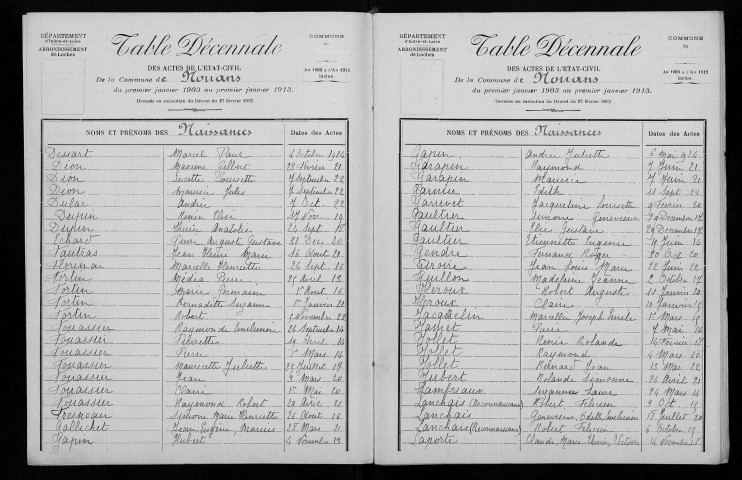 DÉPARTEMENT
d'Indre-et-Loire
ARRONDISSEMENT
de Loches
Table Décennale
COMMUNE
de
DES ACTES DE L'ÉTAT-CIVIL
An 1903 à l'An 1912
inclus.
De la Commune de Nouans
du premier janvier 1903 au premier janvier 1913.
Dressée en exécution du Décret du 27 février 1903
NOMS ET PRÉNOMS DES Naissances Dates des Actes
Dessart Marcel Paul 4 Octobre 1914
Dion Maxime Gilbert 23 Février 21
Dion Lucette Louisette 7 Septembre 22
Dion Maurice Jules 7 Septembre 22
Dulac André 7 Oct. 22
Dupin Renée Elise 17 Nov. 19
Dupin Anatolie 24 Sept. 18
Echard August Gustave 31 Dec. 20
Fautras Jean Henri Marie 16 Aout 21
Florenceau Marcelle Henriette 24 Sept. 16
Fortin Pierre 25 Avril 18
Fortin Marie Germaine 1er Aout 16
Fortin Bernadette Suzanne 1er Janvier 21
Fortin Robert 5 Novembre 22
Fouassier Raymonde Emilienne 24 Septembre 14
Fouassier Pierrette 19 Avril 14
Fouassier Pierre 1er Mars 14
Fouassier Mauricette Juliette 23 Juillet 17
Fouassier Jean 3 Mars 20
Fouassier Claire 1er Mai 20
Fouassier Raymond Robert 20 Avril 21
Fresneau Simone Marie Henriette 26 Aout 16
Gallichet Jean, Eugène, Marcus 28 Mars 21
Gapin Hubert 4 Novembre 13
DÉPARTEMENT
d'Indre-et-Loire
ARRONDISSEMENT
de Loches
Table Décennale
COMMUNE
de
DES ACTES DE L'ÉTAT-CIVIL
An 1903 à l'An 1912
inclus.
De la Commune de Nouans
du premier janvier 1903 au premier janvier 1913.
Dressée en exécution du Décret du 27 février 1903
NOMS ET PRÉNOMS DES Naissances Dates des Actes
Gapin Andrée Juliette 6 Mai 1914
Garapin Raymond 7 Juin 21
Garapin Maurice 7 Juin 21
Garnier Edith 11 Sept. 22
Garrivet Jacqueline Louisette 9 Fevrier 20
Gaultier Simone Genevieve 29 Decembre 17
Gaultier Elie Gustave 29 Decembre 17
Gaultier Etiennette Eugenie 19 Juin 14
Gendre Fernand Roger 30 Oct 20
Giroire Jean Louis Marie 22 Juin 22
Guillon Madeleine Jeanne 2 Octobre 17
Héroux Robert Auguste 11 Janvier 20
Héroux Claire 10 Janvier
Jacquelin Marcelle Joseph Emile 1er Mars
Jamet Pierre 7 Mai 16
Jollet Renée Rolande 14 Février 18
Jollet Raymond 4 Mars 10
Jollet Bernard Jean 13 Mai 22
Jubert Rolande Simonne 24 Avril 21
Lambriaux Suzanne Laure 24 Mars 14
Lanchais (Reconnaissance) Robert Felicien 3 Oct. 18
Lanchais Genevieve, Odette, Emilienne 18 Juillet 20
Lanchais (Reconnaissance) Robert Felicien 6 Octobre 18
Laporte Claude, Marie Victoire 14 Novembre 18